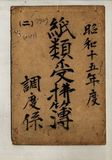 昭和十五年度
紙類受拂簿
調度係
(二)